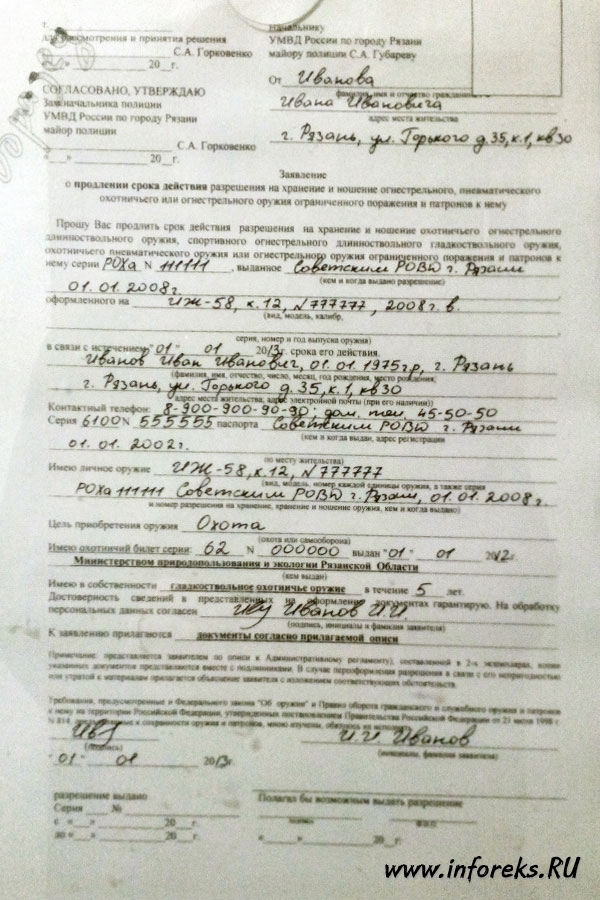 г.
для рассмотрения и принятия решения
С.А. Горковенко
«__» ________ 20__г.
СОГЛАСОВАНО, УТВЕРЖДАЮ
Зам.начальника полиции
УМВД России по городу Рязани
майор полиции
С.А. Горковенко
«__» ________ 20__г.
Начальнику
УМВД России по городу Рязани
майору полиции С.А. Губареву
От Иванова
фамилия, имя и отчество гражданина
Ивана Ивановича
адрес места жительства
г. Рязань, ул. Горького д.35, к.1, кв30
Заявление
о продлении срока действия разрешения на хранение и ношение огнестрельного, пневматического
охотничьего или огнестрельного оружия ограниченного поражения и патронов к нему
Прошу Вас продлить срок действия разрешения на хранение и ношение охотничьего огнестрельного
длинноствольного оружия, спортивного огнестрельного длинноствольного гладкоствольного оружия,
охотничьего пневматического оружия или огнестрельного оружия ограниченного поражения и патронов к
нему серии РОХа N 111111, выданное Советским РОВД г. Рязани
(кем и когда выдано разрешение)
01.01.2008г.
оформленного на ИЖ-58, к.12, №777777, 2008г.в.
(вид, модель, калибр,
серия, номер и год выпуска оружия)
в связи с истечением "01" 01 2013г. срока его действия.
Иванов Иван Иванович, 01.01.1975гр, г. Рязань
(фамилия, имя, отчество, число, месяц, год рождения, место рождения,
г. Рязань, ул. Горького д.35, к.1, кв30
адрес места жительства, адрес электронной почты (при его наличии))
Контактный телефон: 8-900-900-90-90; дом. тел. 45-50-50
Серия 6100 N 555555 паспорта Советским РОВД г. Рязани
(кем и когда выдан, адрес регистрации
01.01.2002г.
(по месту жительства)
Имею личное оружие ИЖ-58, к.12, №777777
(вид, модель, номер каждой единицы оружия, а также серия
РОХа 111111 Советским РОВД г. Рязани, 01.01.2008г.
и номер разрешения на хранение, хранение и ношение оружия, кем и когда выдано)
Цель приобретения оружия Охота
(охота или самооборона)
Имею охотничий билет серии: 62 N 000000 выдан "01" 01 2012г
Министерством природопользования и экологии Рязанской Области
(кем выдан)
Имею в собственности гладкоствольное охотничье оружие в течение 5 лет.
Достоверность сведений в представленных на оформление документах гарантирую. На обработку
персональных данных согласен Иванов И.И.
(подпись, инициалы и фамилия заявителя)
К заявлению прилагаются документы согласно прилагаемой описи
Примечание: представляется заявителем по описи к Административному регламенту, составленной в 2-х экземплярах, копии
указанных документов представляются вместе с подлинниками. В случае переоформления разрешения в связи с его непригодностью
или утратой к материалам прилагается объяснение заявителя с изложением соответствующих обстоятельств.
Требования, предусмотренные Федерального закона "Об оружии" и Правил оборота гражданского и служебного оружия и патронов
к нему на территории Российской Федерации, утвержденных постановлением Правительства Российской Федерации от 21 июля 1998 г
N 814, о сохранности оружия и патронов, мною изучены, обязуюсь их
И.И Иванов
(подпись)
(инициалы, фамилия заявителя)
"01" 01 2013г.
разрешение выдано
Серия ____ № ________
с «__» ________ 20__г.
до «__» ________ 20__г.
Полагал бы возможным выдать разрешение
Ф.И.О.
«__» ________ 20__г.
www.inforeks.RU